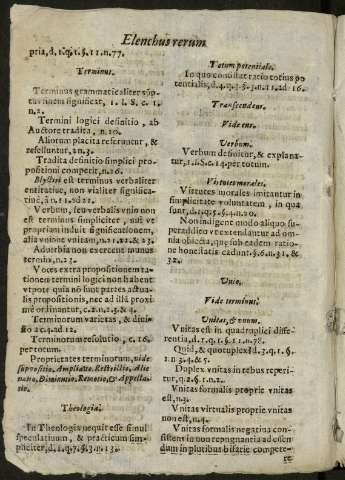 Elenchus rerum
pria, d. 1. q. 1. §. 11. n. 77.
Terminus.
Terminus grammaticaliter sūp-
tus finem significat, 1. l. S. c. 1.
n. 2.
Termini logici definitio, ab
Auctore tradita, n. 20.
Aliorum placita referuntur, &
refelluntur, 2. 1. n. 3.
Tradita definitio simplici pro-
positioni competit, n. 26.
Blyctiri est terminus verbaliter
entitative, non vialiter significa-
tivè,
Verbum, seu verbalis vnio non
est terminus simpliciter, sui ve
propriam induit significationem,
alia vnione vnitam, n. 21. 22. & 23.
Aduerbia non exercent munus
termin, n. 23.
Voces extra propositionem ra-
tionem termini logici non habent
vtpotè quia nō sunt partes actua-
lis propositionis, nec ad illā proxi-
mè ordinantur, c. 2. n. 2. 3. & 4.
Terminorum varietas, & diui-
sio ac. 4. ad 12.
Terminorū resolutio, c. 16.
per totum.
Proprietates terminorum, vide
suppositio, Ampliatio, Restrictio, Alie
natio, Diminutio, Remotio, & Appella-
tio.
Theologia.
In Theologia nequit esse simul
speculatiuum, & practicum sim-
pliciter, d. 1. q. 7. §. 3. n. 13.
Totum potentiale.
In quo consistat ratio totius po
tentialis, d. 4. q. 3. §. 3. n. 11. ad 16.
Transcendens.
Vide ens.
Verbum.
Verbum definitur, & explana-
tur, 1. l. S. c. 14. per totum.
Virtutes morales.
Virtutes morales imitantur in
simplicitate voluntatem, in qua
sunt, d. 1. q. 5. §. 4. n. 20.
Non indigent modo aliquo su-
peraddito vt extendantur ad om-
nia obiecta, quę sub eadem ratio-
ne honestatis cadunt. §. 6. n. 31. &
32.
Vnio.
Vide terminus.
Vnitas, & vnum.
Vnitas est in quadruplici diffe-
rentia, d. 1. q. 1. §. 11. n. 78.
Quid, & quotuplex d. 3. q. 1. §.
1. n. 3. 4. & 5
Duplex vnitas in rebus reperi-
tur, q. 2. §. 1. n. 2.
Vnitas formalis propriè vnitas
est, n. 3.
Vnitas virtualis propriè vnitas
non est, n. 4.
Vnitas formalis negatiua con-
sistens in non repugnantia ad essen
dum in pluribus bifariè compete-
re